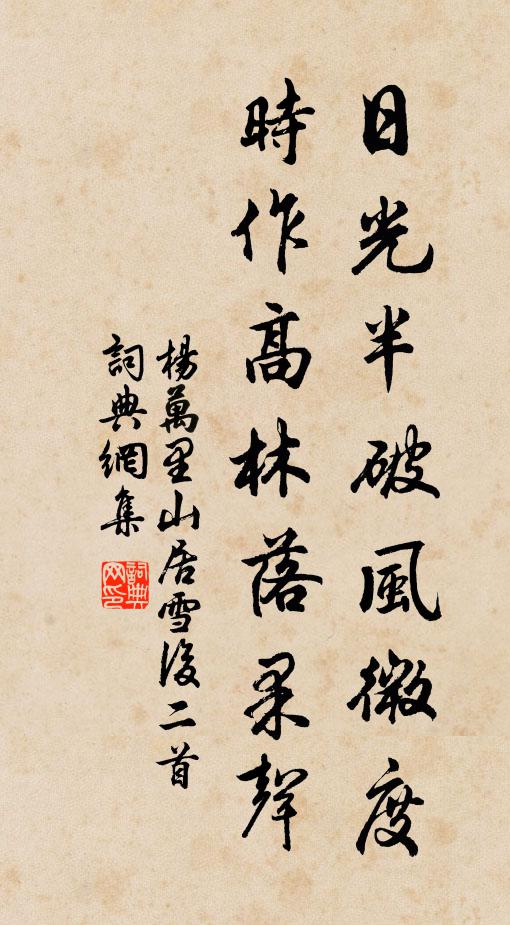 日光半破風微度
時作高林落果聲
楊萬里山居雪後二首
詞典網集
詞典網印